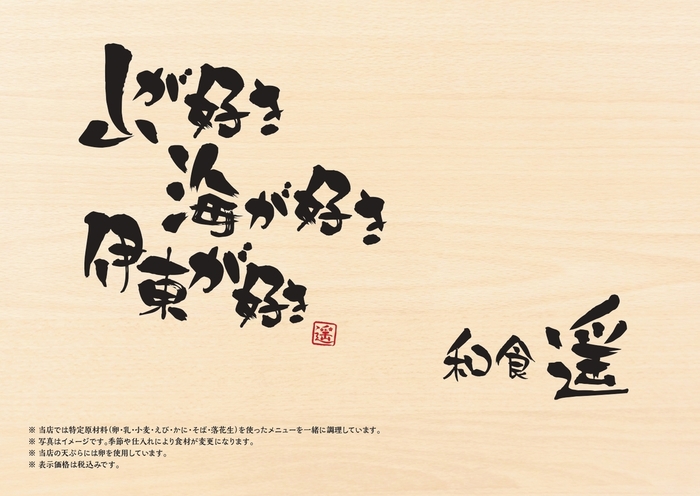 山が好き
海が好き
伊東が好き
遥
和食 遥
※ 当店では特定原材料（卵・乳・小麦・えび・かに・そば・落花生）を使ったメニューを一緒に調理しています。
※ 写真はイメージです。季節や仕入れにより食材が変更になります。
※ 当店の天ぷらには卵を使用しています。
※ 表示価格は税込みです。